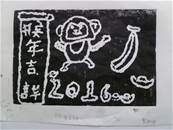 猴年吉祥
2016